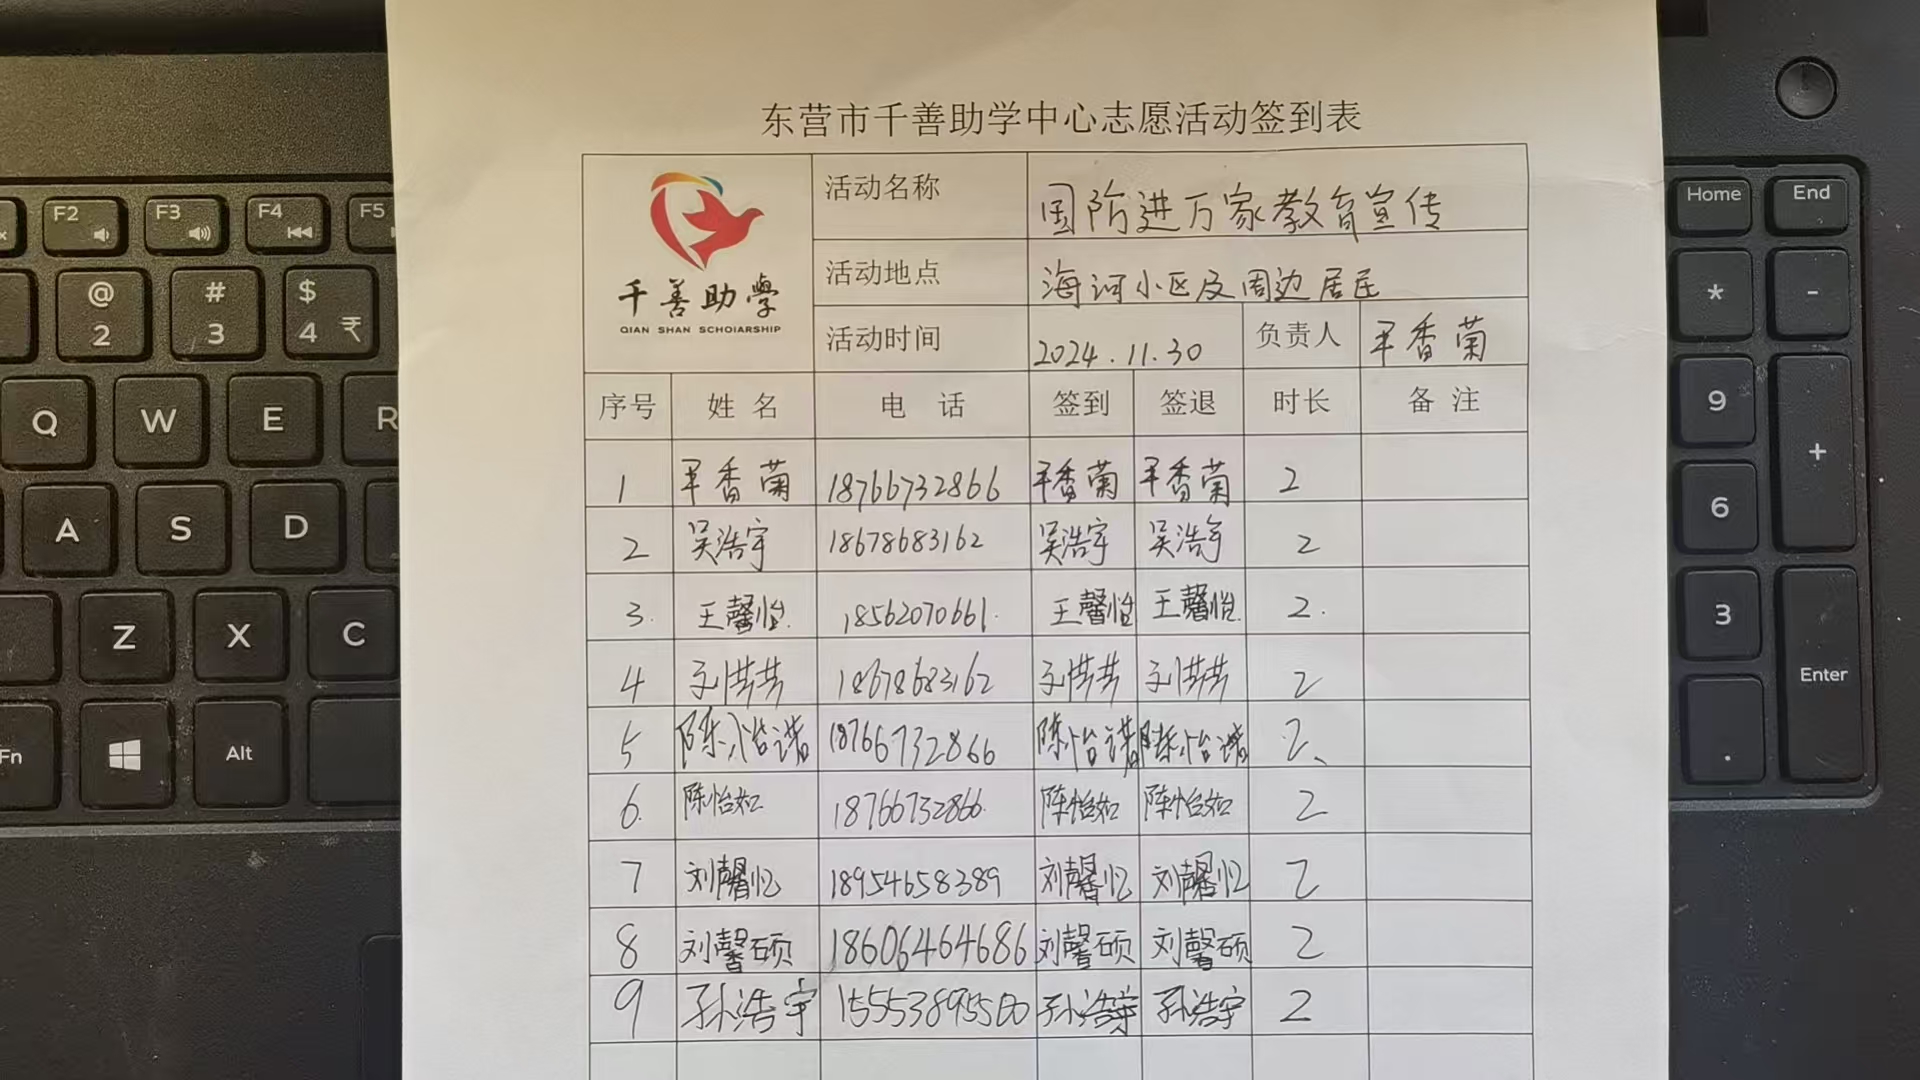 东营市千善助学中心志愿活动签到表
千善助學
QIAN SHAN SCHOIARSHIP
活动名称 国防进万家教育宣传
活动地点 海河小区及周边居民
活动时间 2024.11.30 负责人 香菊
序号 姓名 电话 签到 签退 时长 备注
1 香菊 18766732866 香菊 香菊 2
2 吴浩宇 18678683162 吴浩宇 吴浩宇 2
3. 王馨怡. 18562070661. 王馨怡 王馨怡. 2.
4 18678683162 2
5 陈怡诺 18766732866 陈怡诺 陈怡诺 2、
6. 陈怡如 18766732866. 陈怡如 陈怡如 2
7 刘馨忆 18954658389 刘馨忆 刘馨忆 2
8 刘馨硕 18606464686 刘馨硕 刘馨硕 2
9 孙浩宇 15553895500 孙浩宇 孙浩宇 2
Home End
F2 F3 F4 F5
@ # $
2 3 4 ₹
* -
Q W E R
9 +
A S D
6
Z X C
3
Enter
Fn Alt .